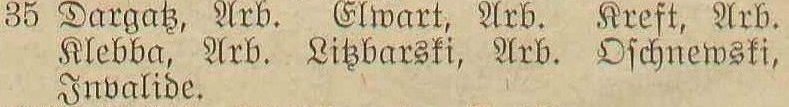 35 Dargatz, Arb. Elwart, Arb. Kreft, Arb.
Klebba, Arb. Litzbarski, Arb. Oschnewski,
Invalide.